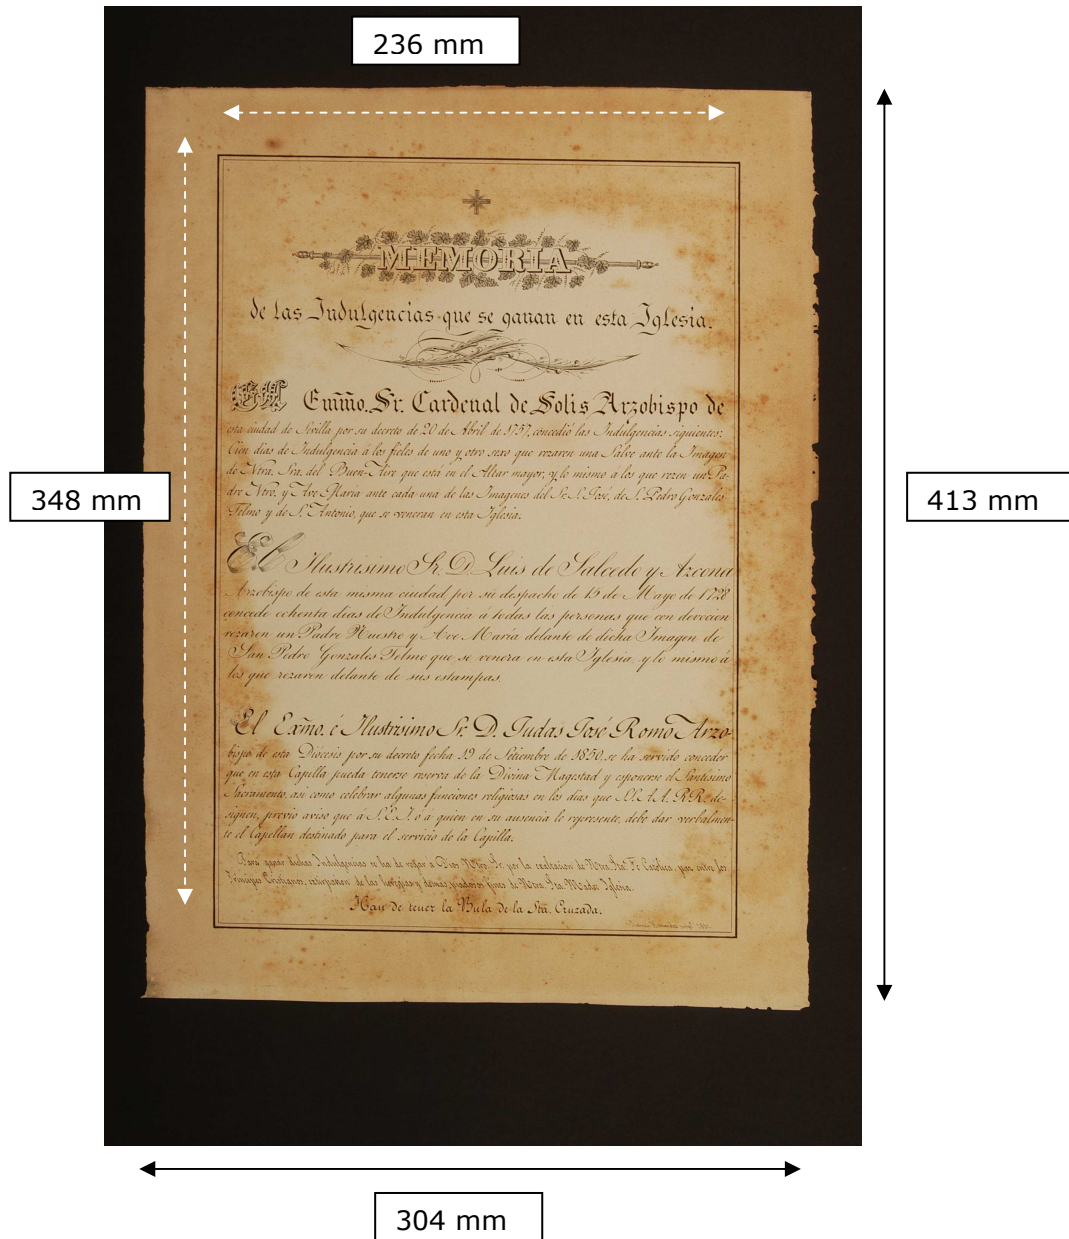 236 mm
MEMORIA
de las Indulgencias que se ganan en esta Iglesia.
El Emm̃o. Sr. Cardenal de Solis Arzobispo de
esta ciudad de Sevilla por su decreto de 20 de Abril de 1757, concedió las Indulgencias siguientes:
Cien dias de Indulgencia á los fieles de uno y otro sexo que rezaren una Salve ante la Imagen
de Ntra. Sra. del Buen-Aire que está en el Altar mayor, y lo mismo á los que rezen un Pa-
dre Ntro. y Ave Maria ante cada una de las Imagenes del Sr. S. José, de S. Pedro Gonzales
Telmo y de S. Antonio, que se veneran en esta Iglesia.
348 mm
413 mm
El Ilustrisimo Sr. D. Luis de Salcedo y Azcona
Arzobispo de esta misma ciudad por su despacho de 15 de Mayo de 1728
concede ochenta dias de Indulgencia á todas las personas que con devocion
rezaren un Padre Nuestro y Ave María delante de dicha Imagen de
San Pedro Gonzales Telmo que se venera en esta Iglesia, y lo mismo á
los que rezaren delante de sus estampas.
El Exm̃o. é Ilustrisimo Sr. D. Judas José Romo Arzo-
bispo de esta Diócesis por su decreto fecha 19 de Setiembre de 1850, se ha servido conceder
que en esta Capilla pueda tenerse reserva de la Divina Magestad y esponerse el Santisimo
Sacramento, asi como celebrar algunas funciones religiosas en los dias que SS. A. A. R. R. de-
signen, previo aviso que á S. E. I. ó á quien en su ausencia le represente, debe dar verbalmen-
te el Capellan destinado para el servicio de la Capilla.
Para ganar dichas Indulgencias se ha de rogar a Dios Ntro. Sr. por la exaltacion de Ntra. Sta. Fe Catolica, paz entre los
Principes Cristianos, extirpacion de las heregias y demas piadosos fines de Ntra. Sta. Madre Iglesia.
Han de tener la Bula de la Sta. Cruzada.
304 mm